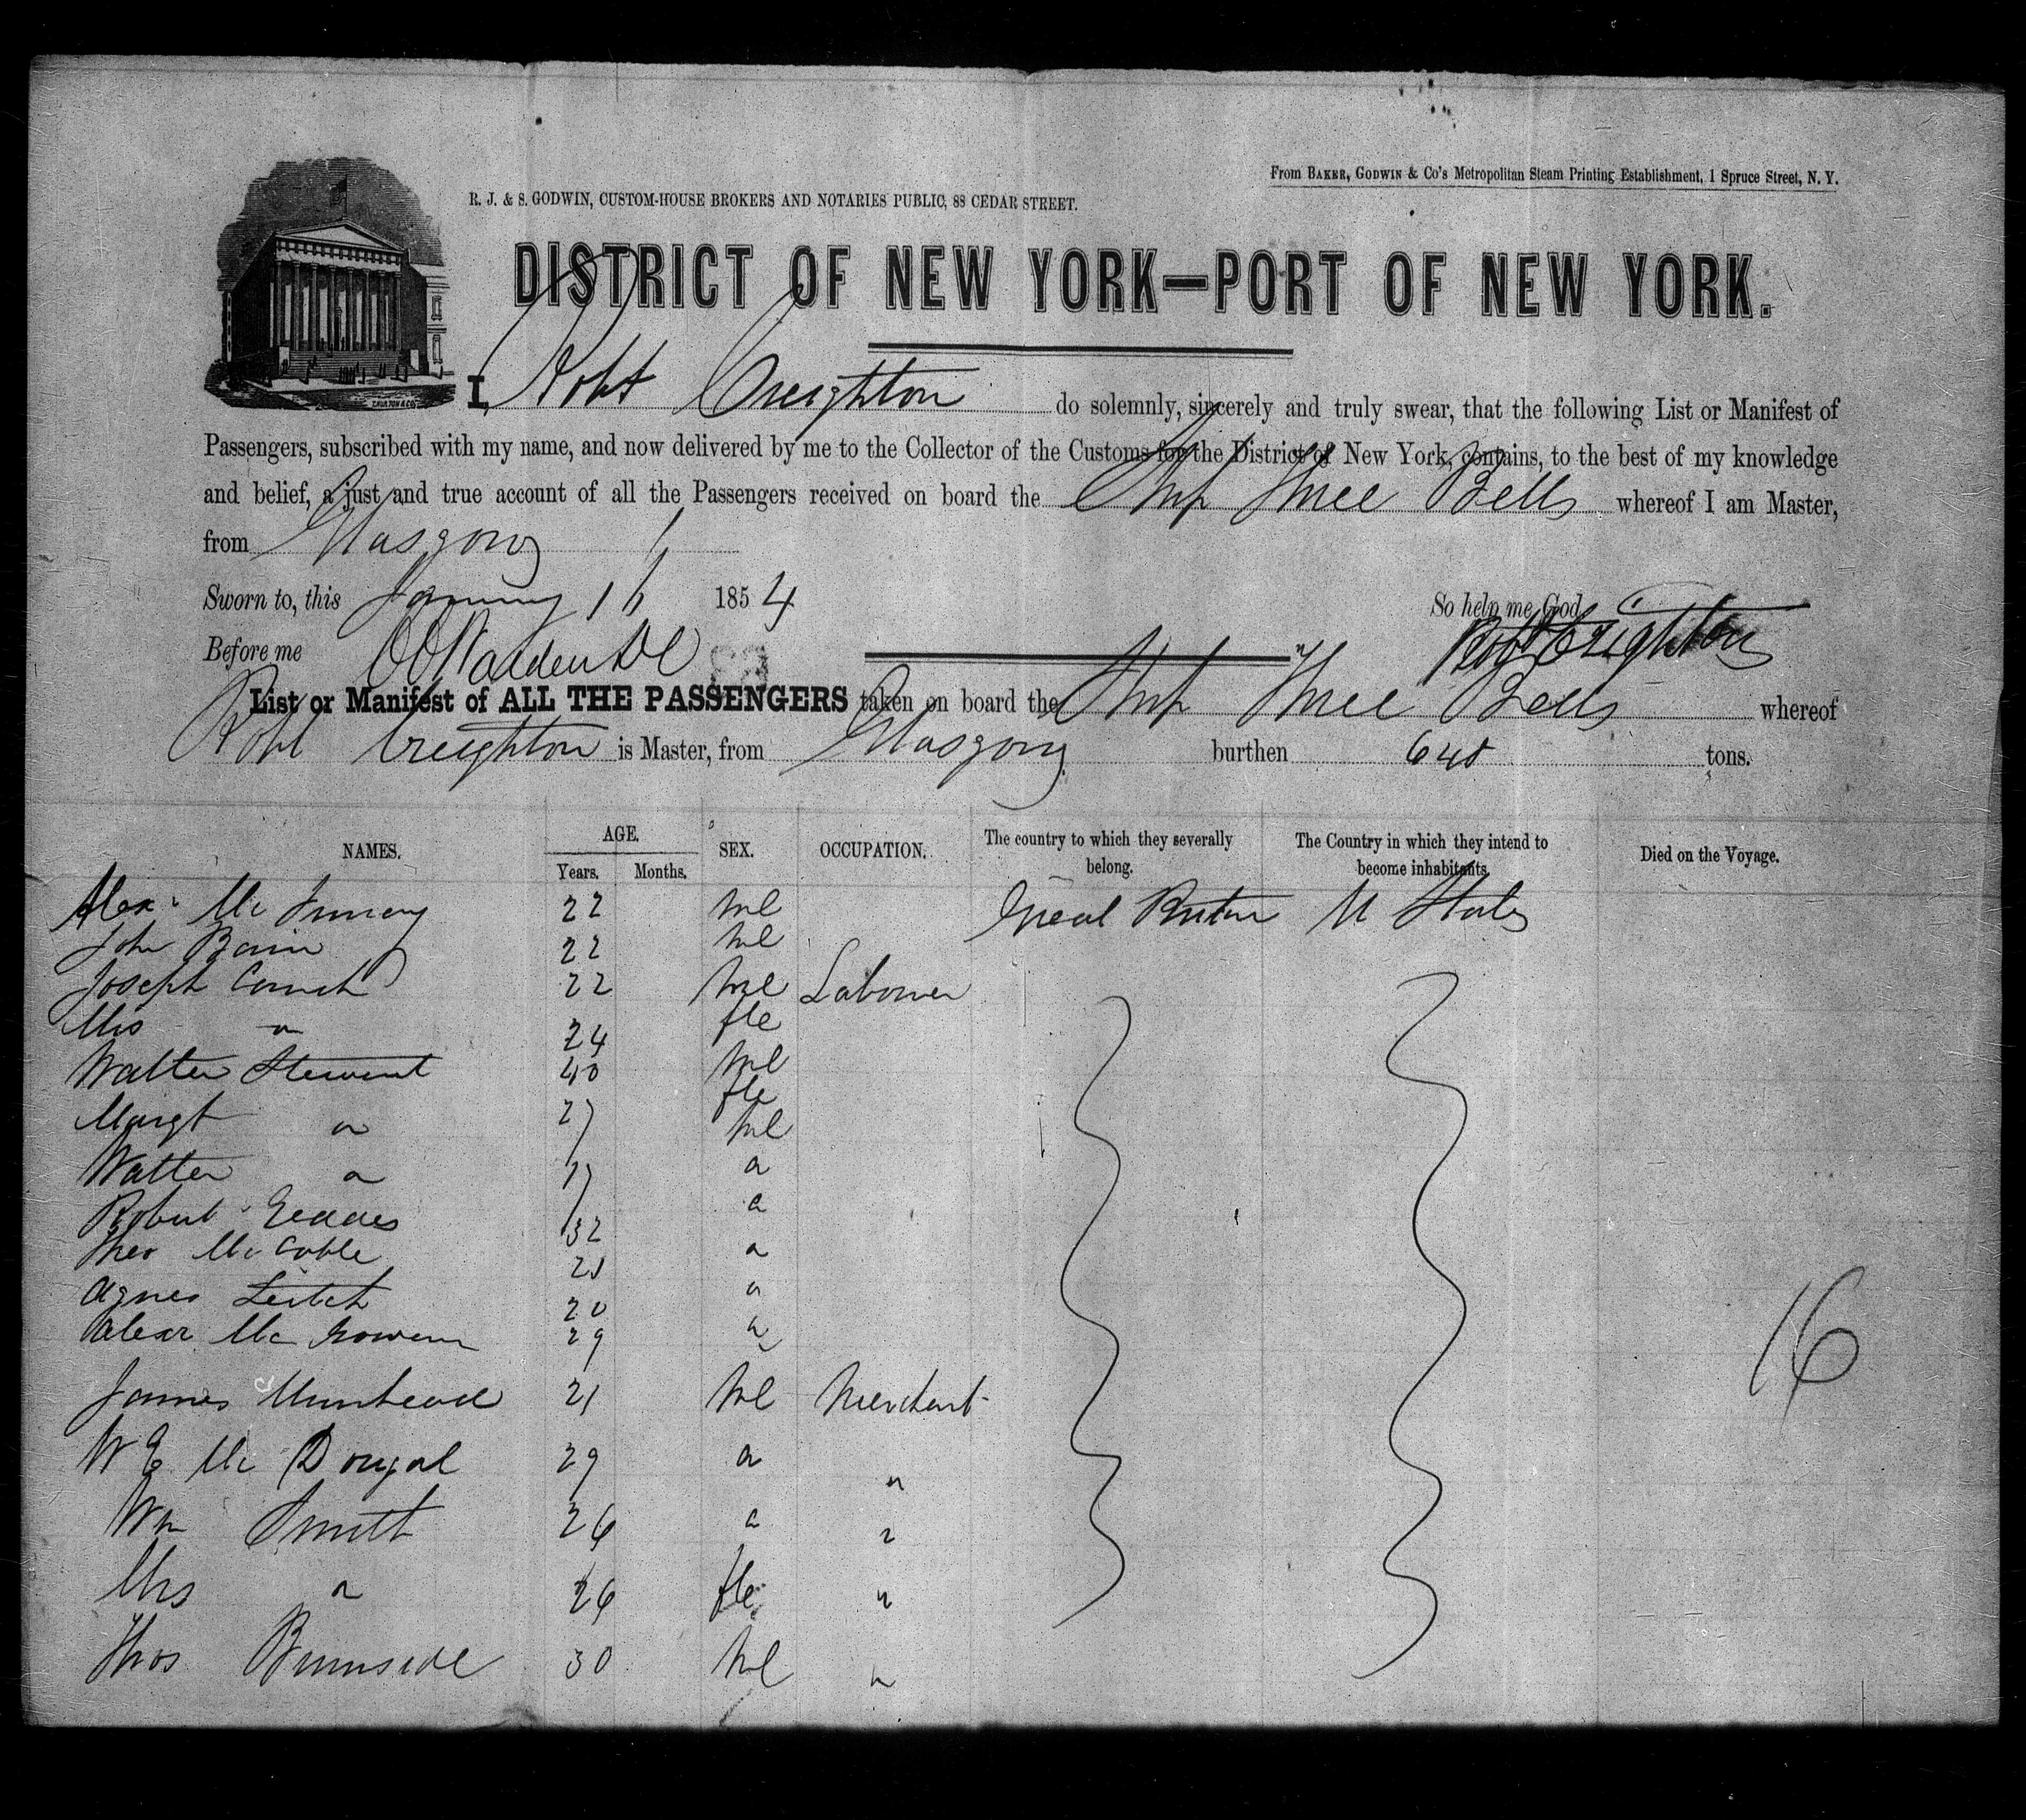 From BAKER, GODWIN & Co's Metropolitan Steam Printing Establishment, 1 Spruce Street, N. Y.
R. J. & S. GODWIN, CUSTOM-HOUSE BROKERS AND NOTARIES PUBLIC, 88 CEDAR STREET.
DISTRICT OF NEW YORK—PORT OF NEW YORK.
I, Robt Creighton do solemnly, sincerely and truly swear, that the following List or Manifest of
Passengers, subscribed with my name, and now delivered by me to the Collector of the Customs for the District of New York, contains, to the best of my knowledge
and belief, a just and true account of all the Passengers received on board the Ship Three Bells whereof I am Master,
from Glasgow
Sworn to, this January 16 1854 So help me God
Before me Robt Creighton
List or Manifest of ALL THE PASSENGERS taken on board the Ship Three Bells whereof
Robt Creighton is Master, from Glasgow burthen 648 tons.
NAMES. AGE. Years. Months. SEX. OCCUPATION. The country to which they severally belong. The Country in which they intend to become inhabitants. Died on the Voyage.
Alexr Mc 22 ml Great Britain U States
John 22 ml
Joseph 22 ml Labourer
Mrs " 24 fle
Walter Stewart 40 ml
Margt " 27 fle
Walter " 17 ml
Robert Geddes 32 "
Mc 21 "
Agnes Leitch 20 "
Alexr Mc Gowan 29 "
James Muirhead 21 ml Merchant
W G Mc Dougal 29 " "
Wm Smith 26 " "
Mrs " 26 fle "
Thos Burnside 30 ml "
16